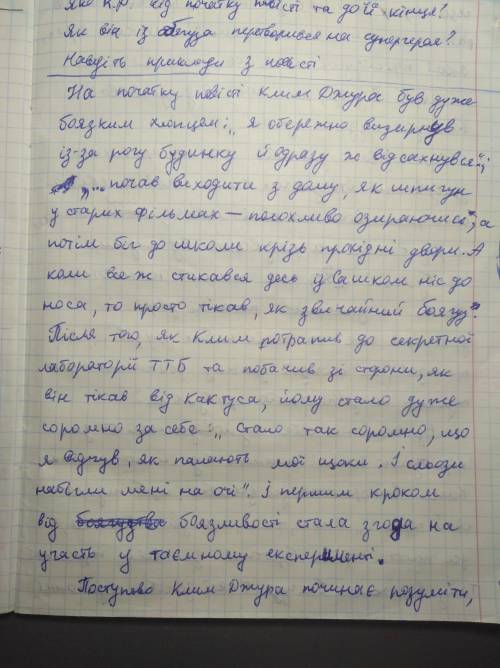 від початку повісті та до її кінця?
Як він із боягуза перетворився на супергероя?
Наведіть приклади з повісті
На початку повісті Клим Джура був дуже
боязким хлопцем: „ я обережно визирнув
із-за рогу будинку й одразу ж відсахнувся";
„...почав виходити з дому, як шпигун
у старих фільмах — полохливо озираючись", а
потім біг до школи крізь прохідні двори. А
коли все ж стикався десь із Сашком ніс до
носа, то просто тікав, як звичайний боягуз".
Після того, як Клим потрапив до секретної
лабораторії ТТБ та побачив зі сторони, як
він тікав від Кактуса, йому стало дуже
соромно за себе: „ Стало так соромно, що
я відчув, як палають мої щоки. І сльози
набігли мені на очі". І першим кроком
від боягузтва боязливості стала згода на
участь у таємному експерименті.
Поступово Клим Джура починає розуміти,